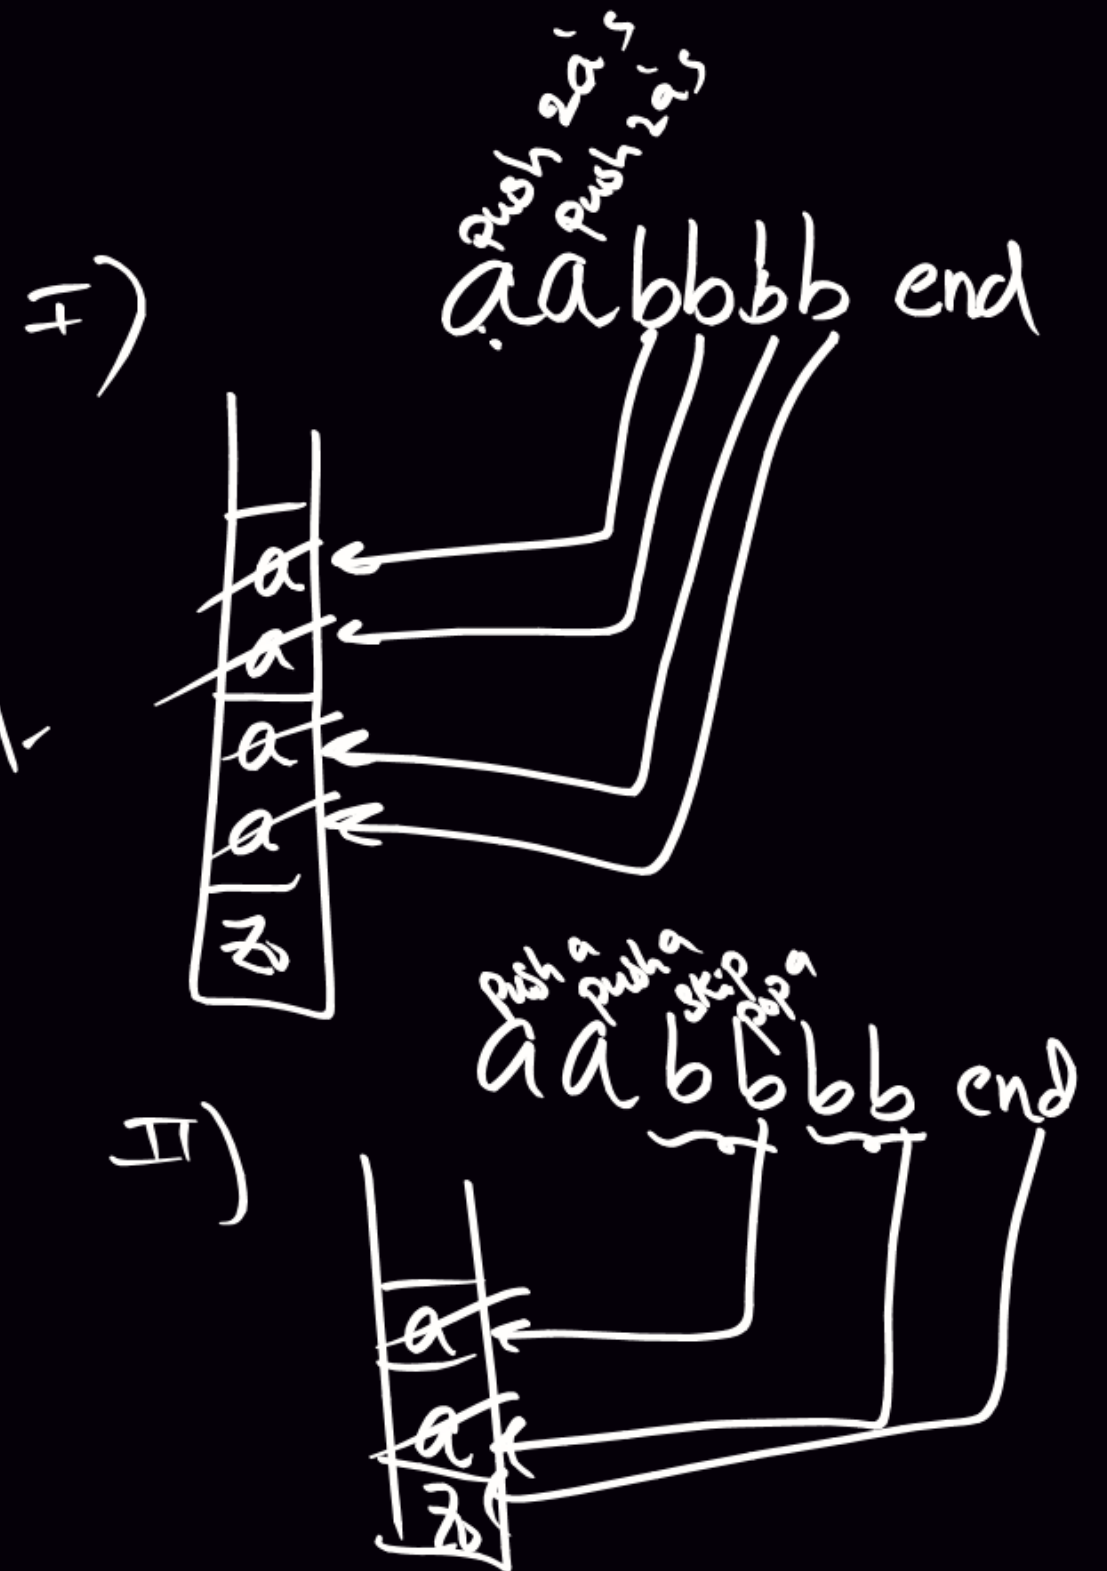 push 2a's
push 2a's
I)
aabbbb end
a
a
a
a
z₀
push a
push a
skip
pop a
aabbbb end
II)
a
a
z₀